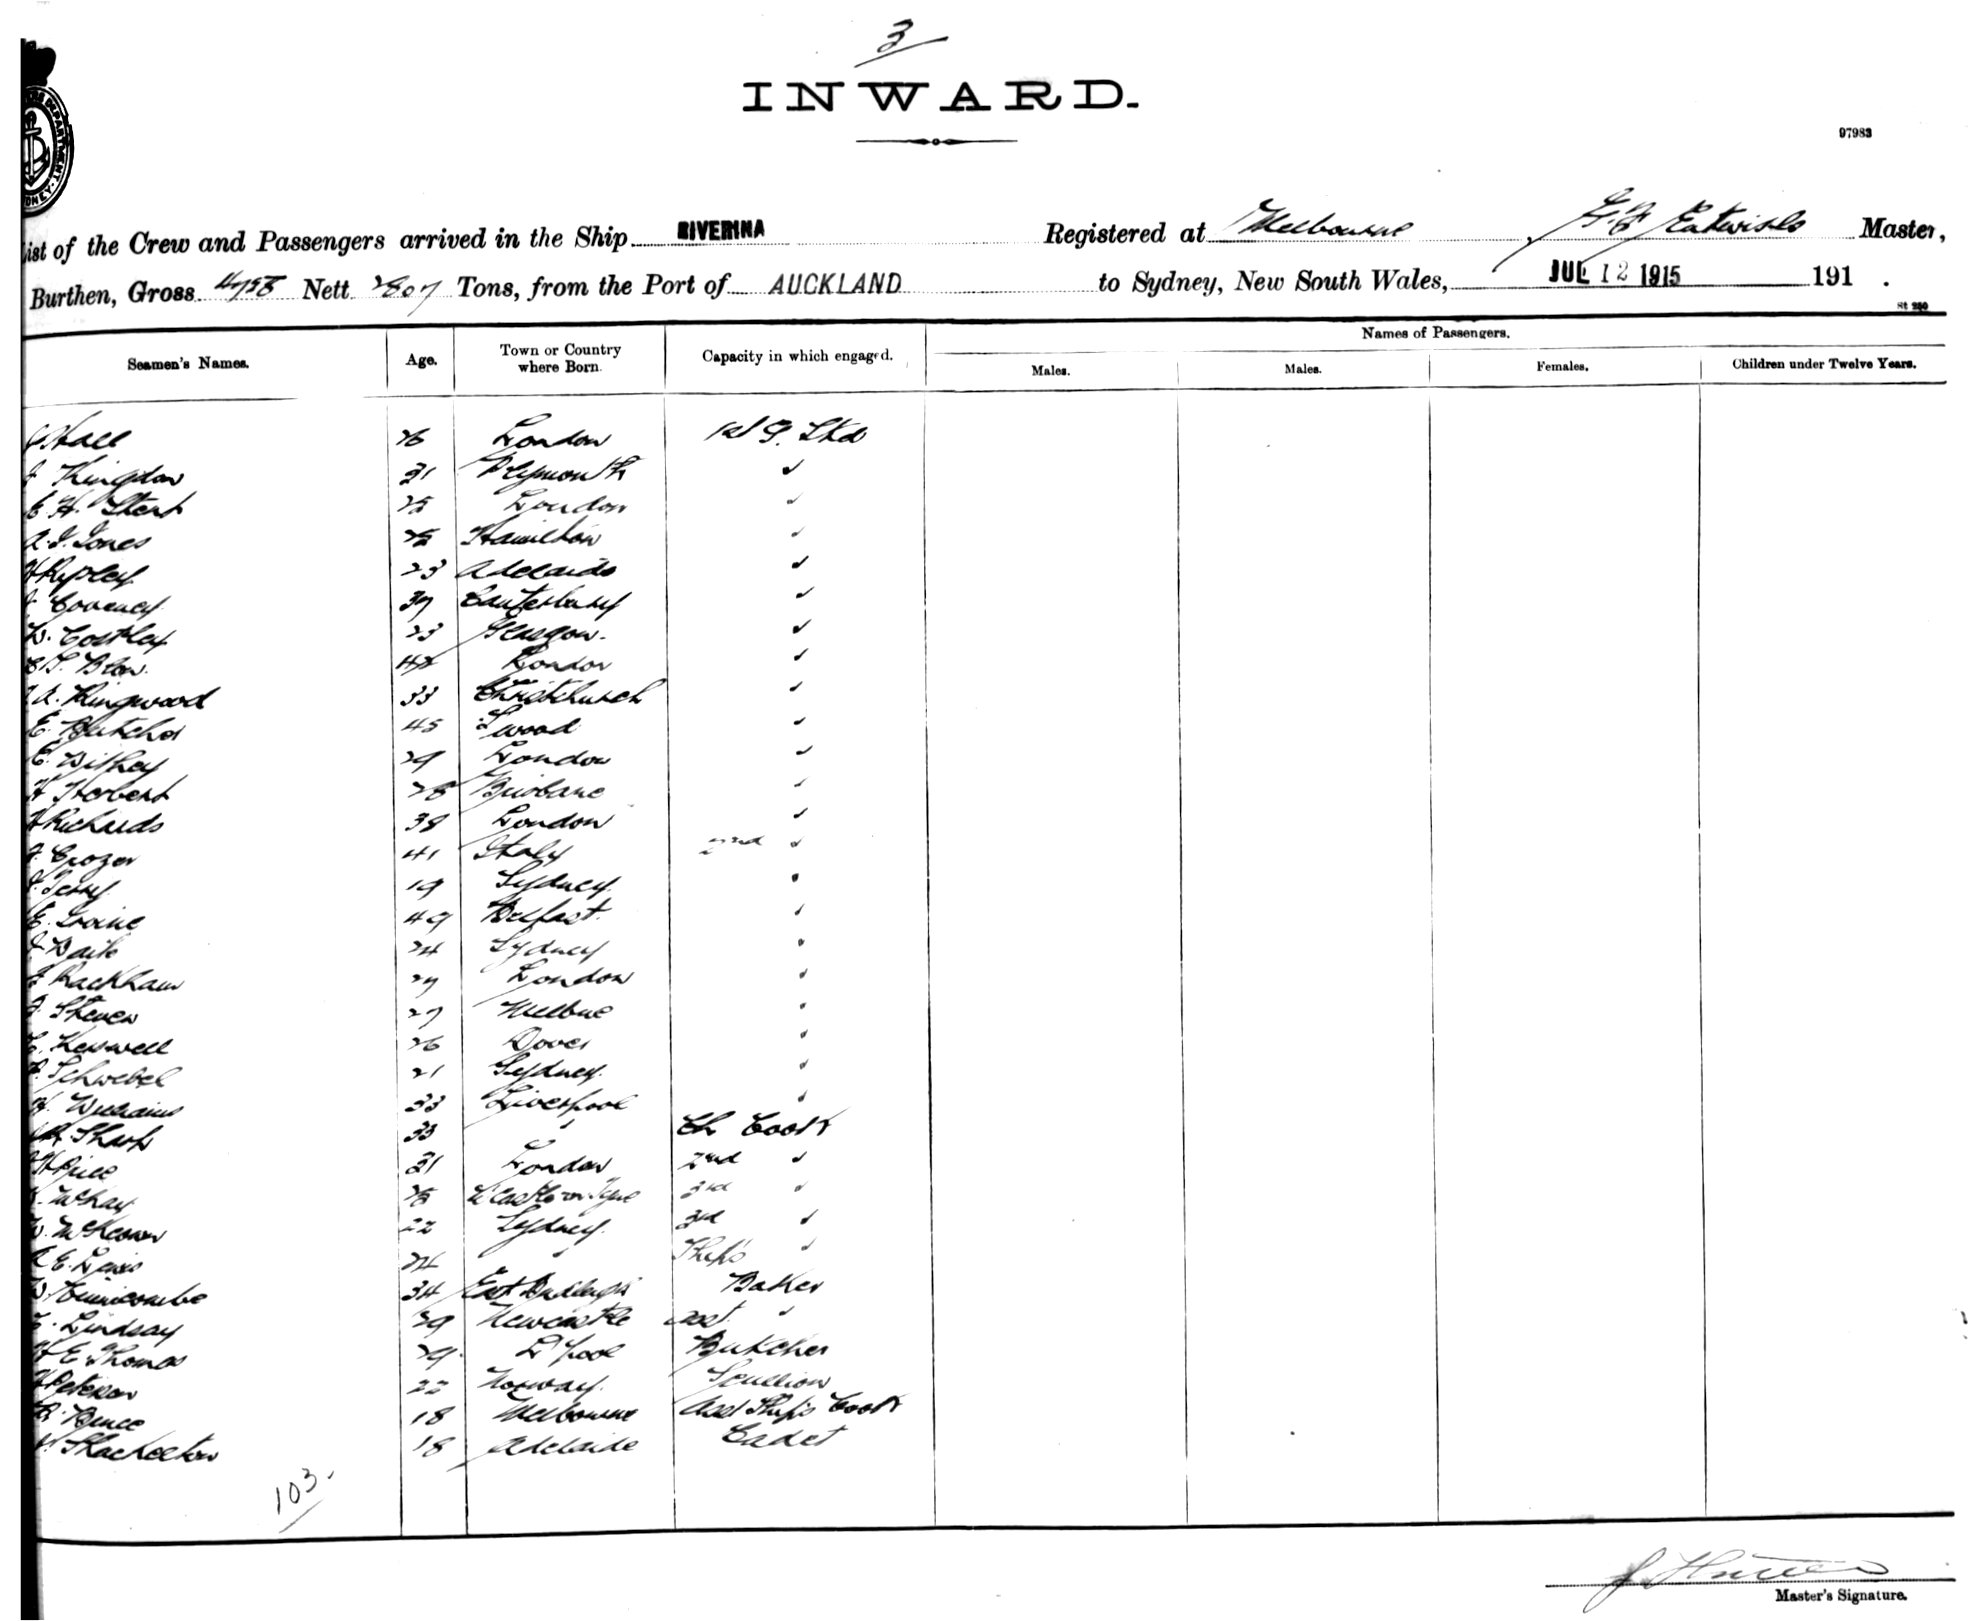 3
INWARD.
97983
List of the Crew and Passengers arrived in the Ship RIVERINA Registered at Melbourne, Master,
Burthen, Gross 4758 Nett 2807 Tons, from the Port of AUCKLAND to Sydney, New South Wales, JUL 12 1915 191 .
St 250
Names of Passengers.
Seamen's Names. Age. Town or Country where Born. Capacity in which engaged. Males. Males. Females. Children under Twelve Years.
Hall 26 London 1st S. Std
Kingdon 31 Plymouth "
E. H. Stert London "
A. J. Jones Hamilton "
23 Adelaide "
Coveney 37 Canterbury "
W. Costley 23 Glasgow. "
Blow. 42 London "
A. Ringwood 33 Christchurch "
E. Butcher 45 "
E. Withey 29 London "
H Herbert 28 Brisbane "
H Richards 38 London "
Crozer 41 Italy 2nd "
Terry 19 Sydney. "
E. Irvine 49 Belfast. "
24 Sydney "
Rackham 27 London "
Steven 27 Melbne "
Kerswell 26 Dover "
Schwebel 21 Sydney. "
H. Williams 33 Liverpool "
Sharp 33 " Ch Cook
31 London 2nd "
N'Castle on Tyne 3rd "
W. McKeown 22 Sydney. 3rd "
E. Lewis 24 " Ship's "
W Kinnicombe 34 East Baker
Lindsay 39 Newcastle asst. "
H E Thomas 29 L'pool Butcher
Peterson 22 Norway. Scullion
R. Bruce 18 Melbourne Asst Ship's Cook
Shackelton 18 Adelaide Cadet
103.
Master's Signature.